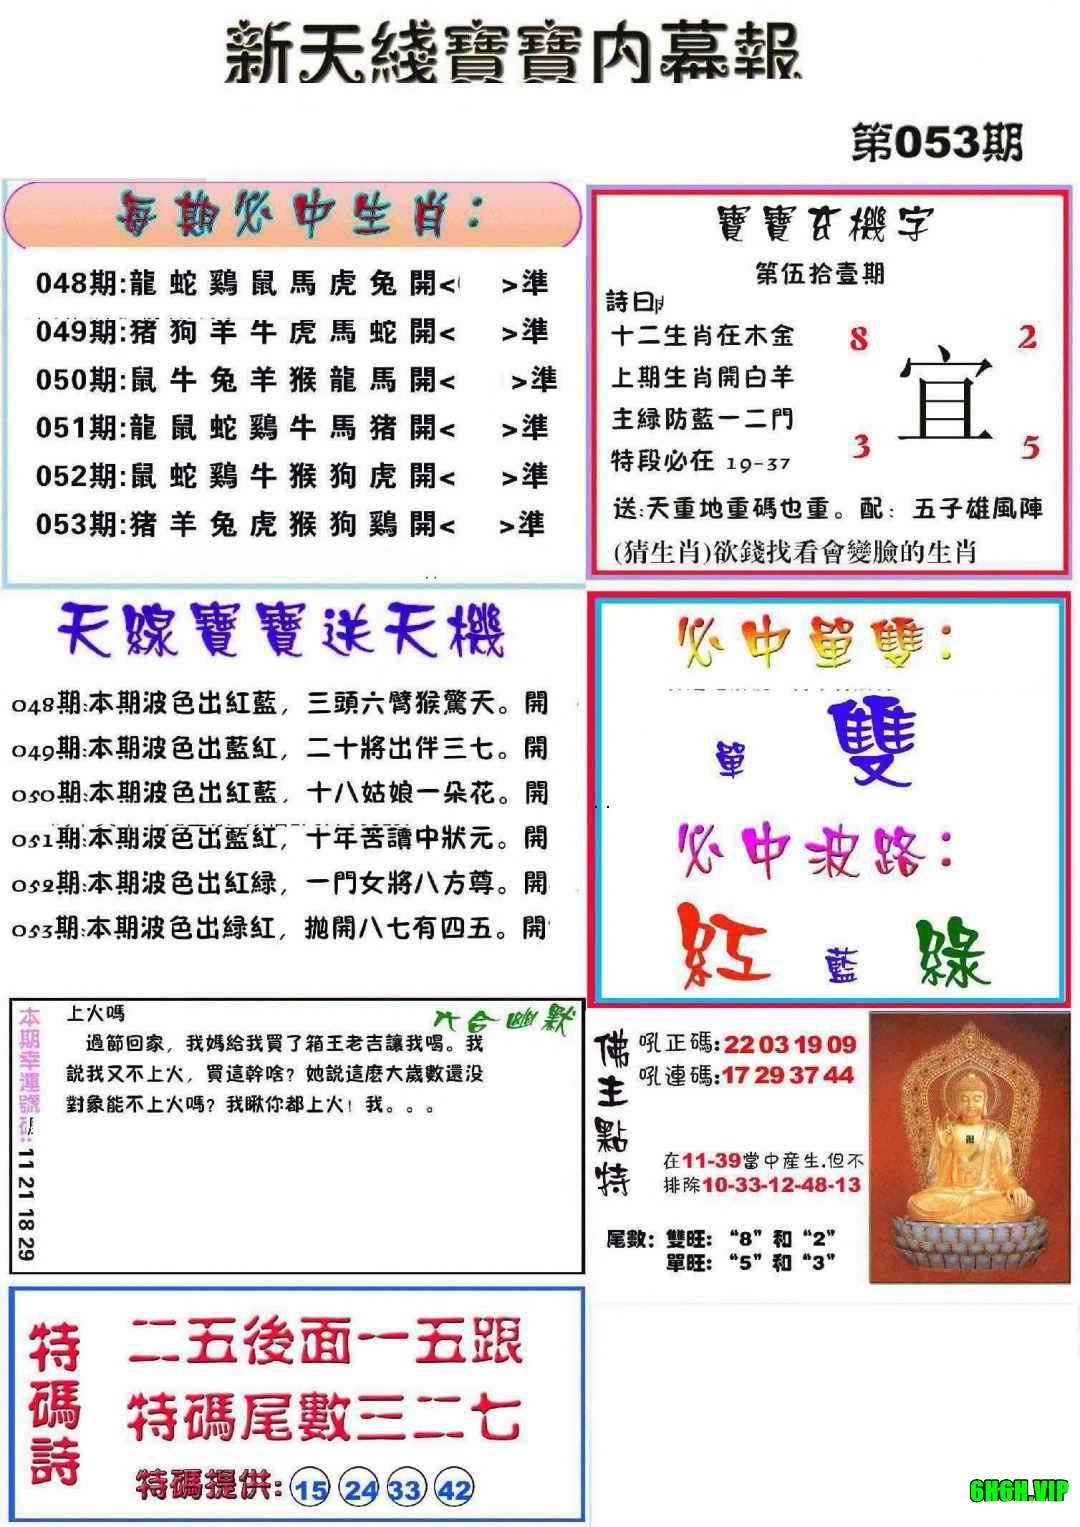 新天綫寶寶内幕報
第053期
每期必中生肖：
048期:龍蛇鷄鼠馬虎兔開< >準
049期:猪狗羊牛虎馬蛇開< >準
050期:鼠牛兔羊猴龍馬開< >準
051期:龍鼠蛇鷄牛馬猪開< >準
052期:鼠蛇鷄牛猴狗虎開< >準
053期:猪羊兔虎猴狗鷄開< >準
寶寶玄機字
第伍拾壹期
詩曰
十二生肖在木金
上期生肖開白羊
主緑防藍一二門
特段必在 19-37
8 2
宜
3 5
送:天重地重碼也重。配：五子雄風陣
(猜生肖)欲錢找看會變臉的生肖
天線寶寶送天機
048期:本期波色出紅藍，三頭六臂猴驚天。開
049期:本期波色出藍紅，二十將出伴三七。開
050期:本期波色出紅藍，十八姑娘一朵花。開
051期:本期波色出藍紅，十年苦讀中狀元。開
052期:本期波色出紅緑，一門女將八方尊。開
053期:本期波色出緑紅，抛開八七有四五。開
必中單雙：
單 雙
必中波路：
紅 藍 綠
本期幸運號碼: 11 21 18 29
六合幽默
上火嗎
過節回家，我媽給我買了箱王老吉讓我喝。我
説我又不上火，買這幹啥？她説這麽大歲數還没
對象能不上火嗎？我瞅你都上火！我。。。
佛主點特
吼正碼:22 03 19 09
吼連碼:17 29 37 44
在11-39當中産生.但不
排除10-33-12-48-13
尾數：雙旺：“8”和“2”
單旺：“5”和“3”
特碼詩
二五後面一五跟
特碼尾數三二七
特碼提供: 15 24 33 42
6H6H.VIP